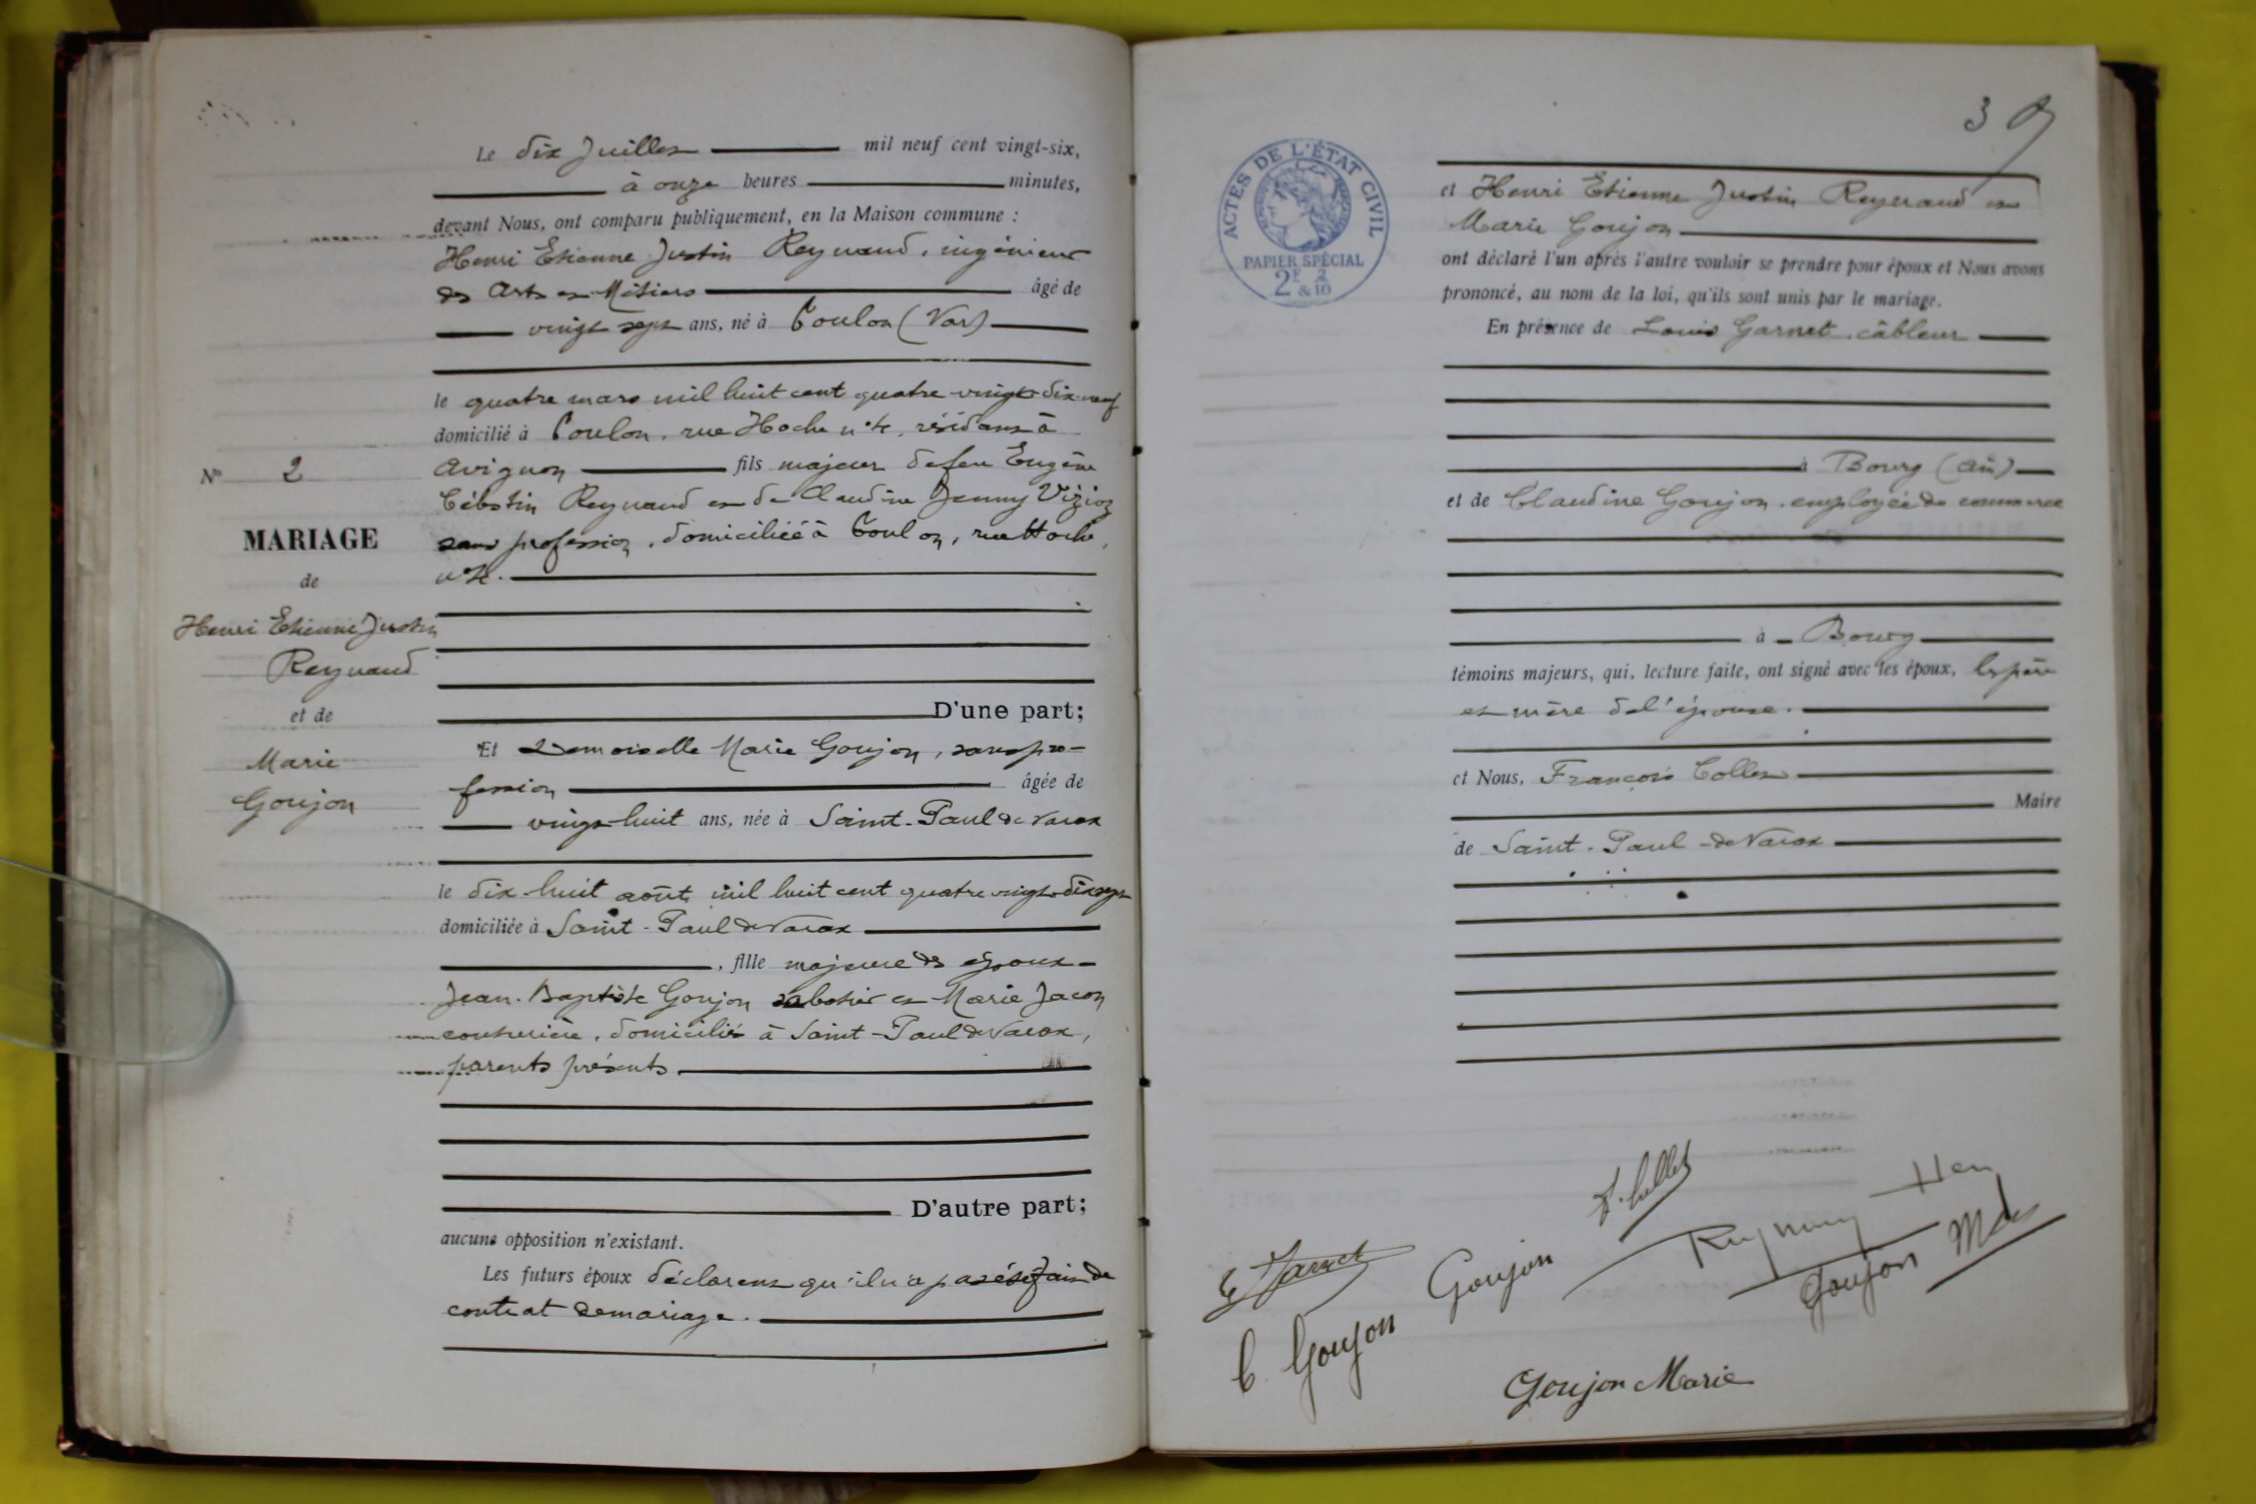 Le dix Juillet mil neuf cent vingt-six,
à onze heures minutes,
devant Nous, ont comparu publiquement, en la Maison commune :
Henri Etienne Justin Reynaud, ingénieur
des Arts et Métiers âgé de
vingt sept ans, né à Toulon (Var)
le quatre mars mil huit cent quatre vingt dix-neuf
domicilié à Toulon, rue Hoche n°4, résidant à
Avignon fils majeur de feu Eugène
Célestin Reynaud et de Claudine Jenny Vizioz
sans profession, domiciliée à Toulon, rue Hoche,
n°4.
N° 2
MARIAGE
de
Henri Etienne Justin
Reynaud
et de
Marie
Goujon
D'une part;
Et Demoiselle Marie Goujon, sans pro-
fession âgée de
vingt-huit ans, née à Saint-Paul de Varax
le dix-huit août mil huit cent quatre vingt-dix sept
domiciliée à Saint-Paul de Varax
, fille majeure des époux
Jean-Baptiste Goujon sabotier et Marie Jacon
couturière, domiciliés à Saint-Paul de Varax,
parents présents.
D'autre part;
aucune opposition n'existant.
Les futurs époux déclarent qu'il n'a pas été fait de
contrat de mariage.
3
ACTES DE L'ÉTAT CIVIL
PAPIER SPÉCIAL
2F & 2/10
et Henri Etienne Justin Reynaud et
Marie Goujon
ont déclaré l'un après l'autre vouloir se prendre pour époux et Nous avons
prononcé, au nom de la loi, qu'ils sont unis par le mariage.
En présence de Louis Garnet, câbleur
à Bourg (Ain)
et de Claudine Goujon, employée de commerce
à Bourg
témoins majeurs, qui, lecture faite, ont signé avec les époux, les père
et mère de l'épouse.
et Nous, François Collet
Maire
de Saint-Paul-de Varax
F. Collet
Reynaud Hen
Garnet
Goujon
Goujon
C. Goujon
Goujon Marie